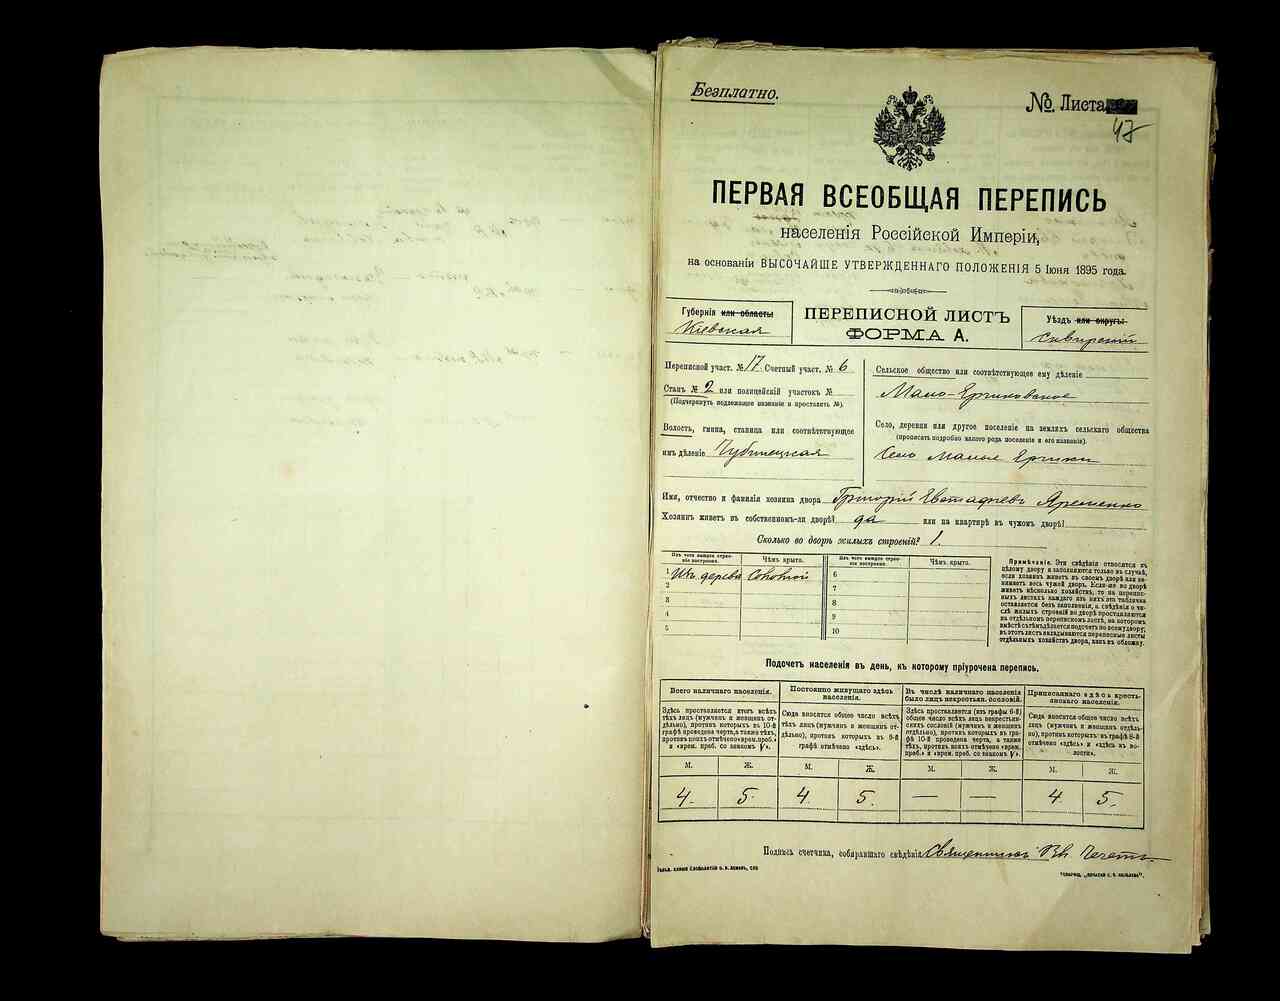 Безплатно.
№ Листа
47
ПЕРВАЯ ВСЕОБЩАЯ ПЕРЕПИСЬ
населенія Россійской Имперіи,
на основаніи ВЫСОЧАЙШЕ УТВЕРЖДЕННАГО ПОЛОЖЕНІЯ 5 Іюня 1895 года.
Губернія или области
Кіевская
ПЕРЕПИСНОЙ ЛИСТЪ
ФОРМА А.
Уѣздъ или округъ
Сквирскій
Переписной участ. № 17. Счетный участ. № 6
Станъ № 2 или полицейскій участокъ №
(Подчеркнуть подлежащее названіе и проставить №).
Волость, гмина, станица или соотвѣтствующее
имъ дѣленіе Чубинецкая
Сельское общество или соотвѣтствующее ему дѣленіе
Мало-Ерчиковское
Село, деревня или другое поселеніе на земляхъ сельскаго общества
(прописать подробно какого рода поселеніе и его названіе).
Село Малые Ерчики
Имя, отчество и фамилія хозяина двора Григорій Евстафіевъ Яременко
Хозяинъ живетъ въ собственномъ-ли дворѣ? да или на квартирѣ въ чужомъ дворѣ?
Сколько во дворѣ жилыхъ строеній? 1.
Изъ чего каждое строеніе построено.
Чѣмъ крыто.
Изъ чего каждое строеніе построено.
Чѣмъ крыто.
1 Изъ дерева Соломой 6
2 7
3 8
4 9
5 10
Примѣчаніе. Эти свѣдѣнія относятся къ
цѣлому двору и заполняются только въ случаѣ,
если хозяинъ живетъ въ своемъ дворѣ или за-
нимаетъ весь чужой дворъ. Если-же во дворѣ
живетъ нѣсколько хозяйствъ, то на перепис-
ныхъ листахъ каждаго изъ нихъ эта табличка
оставляется безъ заполненія, а свѣдѣнія о чи-
слѣ жилыхъ строеній во дворѣ проставляются
на отдѣльномъ переписномъ листѣ, на которомъ
вмѣстѣ съ тѣмъ дѣлается подсчетъ по всему двору;
въ этотъ листъ вкладываются переписные листы
отдѣльныхъ хозяйствъ двора, какъ въ обложку.
Подсчетъ населенія въ день, къ которому пріурочена перепись.
Всего наличнаго населенія.
Постоянно живущаго здѣсь
населенія.
Въ числѣ наличнаго населенія
было лицъ некрестьян. сословій.
Приписаннаго здѣсь кресть-
янскаго населенія.
Здѣсь проставляется итогъ всѣхъ
тѣхъ лицъ (мужчинъ и женщинъ от-
дѣльно), противъ которыхъ въ 10-й
графѣ проведена черта, а также тѣхъ,
противъ коихъ отмѣчено «врем. преб.»
и «врем. преб. со знакомъ V».
Сюда вносится общее число всѣхъ
тѣхъ лицъ (мужчинъ и женщинъ от-
дѣльно), противъ которыхъ въ 9-й
графѣ отмѣчено «здѣсь».
Здѣсь проставляется (изъ графы 6-й)
общее число всѣхъ лицъ некрестьян-
скихъ сословій (мужчинъ и женщинъ
отдѣльно), противъ которыхъ въ гра-
фѣ 10-й проведена черта, а также
тѣхъ, противъ коихъ отмѣчено «врем.
преб.» и «врем. преб. со знакомъ V».
Сюда вносится общее число всѣхъ
лицъ (мужчинъ и женщинъ отдѣль-
но), противъ которыхъ въ графѣ 8-й
отмѣчено «здѣсь» и «здѣсь въ во-
лости».
М. Ж. М. Ж. М. Ж. М. Ж.
4. 5. 4. 5. — — 4 5.
Подпись счетчика, собиравшаго свѣдѣнія Священникъ Вл.